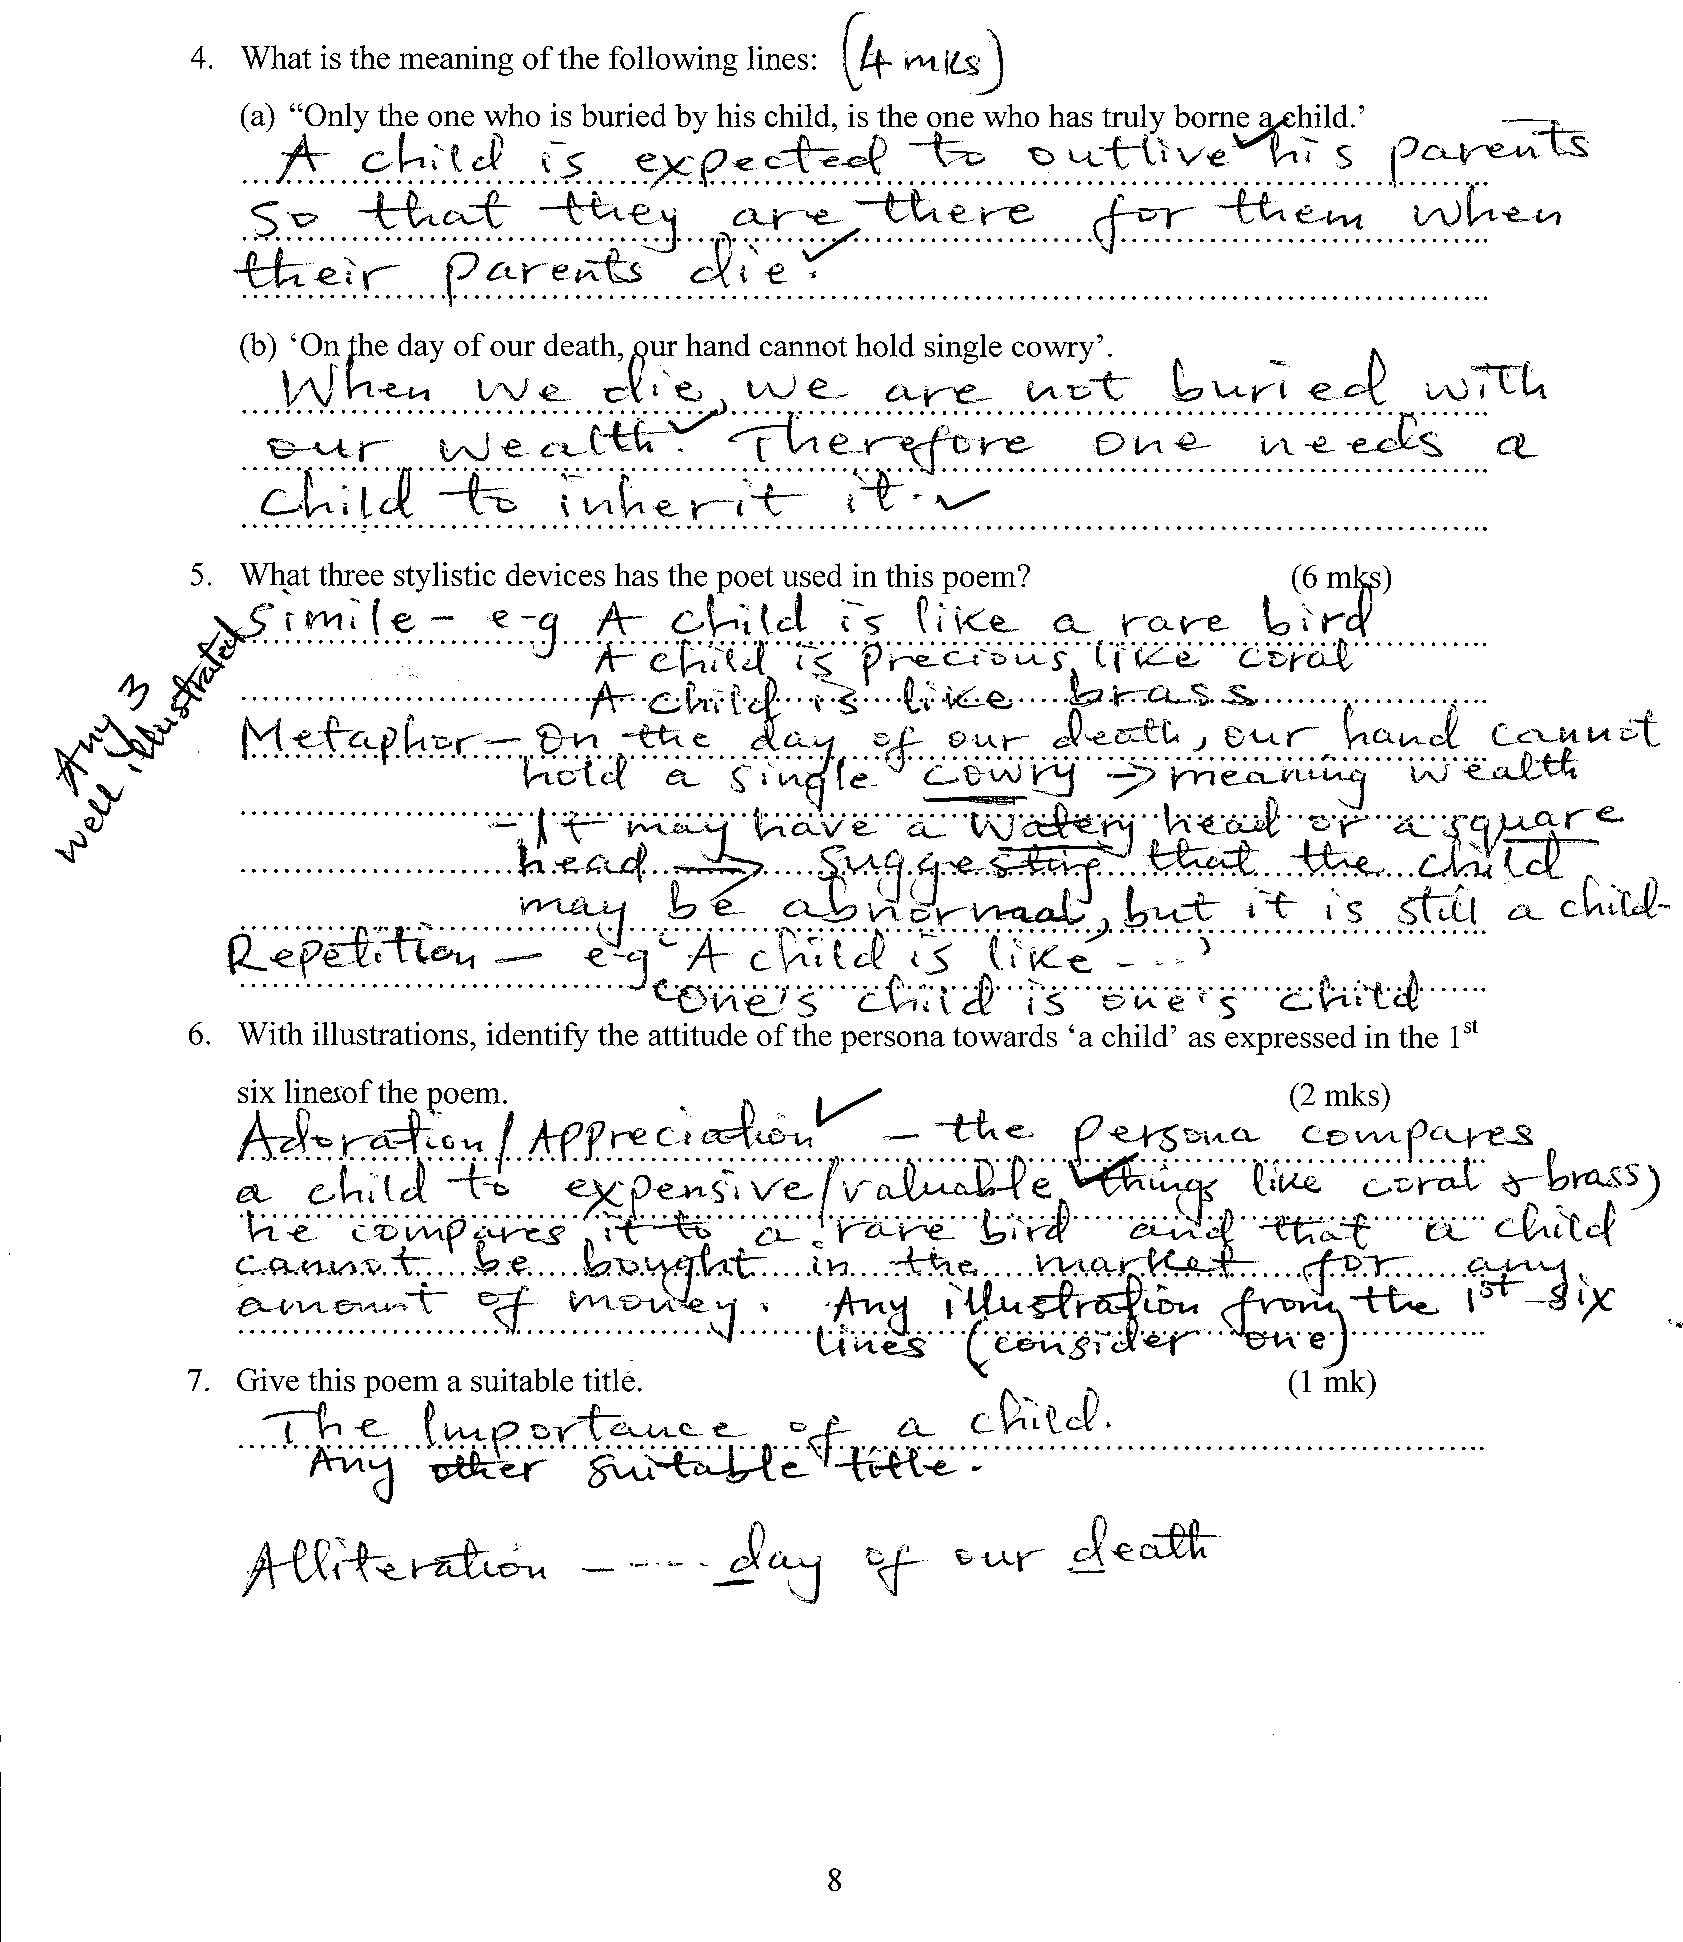 4. What is the meaning of the following lines: (4 mks)
(a) “Only the one who is buried by his child, is the one who has truly borne a child.’
A child is expected to outlive his parents
so that they are there for them when
their parents die.
(b) ‘On the day of our death, our hand cannot hold single cowry’.
When we die, we are not buried with
our wealth. Therefore one needs a
child to inherit it.
5. What three stylistic devices has the poet used in this poem? (6 mks)
Any 3
well illustrated
Simile - e-g A child is like a rare bird
A child is precious like coral
A child is like brass
Metaphor - On the day of our death, our hand cannot
hold a single cowry → meaning wealth
- It may have a watery head or a square
head → suggesting that the child
may be abnormal, but it is still a child-
Repetition - e-g ‘A child is like ----’
‘One's child is one's child
6. With illustrations, identify the attitude of the persona towards ‘a child’ as expressed in the 1st
six lines of the poem. (2 mks)
Adoration / Appreciation - the persona compares
a child to expensive/valuable things like coral & brass,
he compares it to a rare bird and that a child
cannot be bought in the market for any
amount of money. Any illustration from the 1st six
lines (consider one)
7. Give this poem a suitable title. (1 mk)
The Importance of a child.
Any other suitable title.
Alliteration - ---- day of our death
8